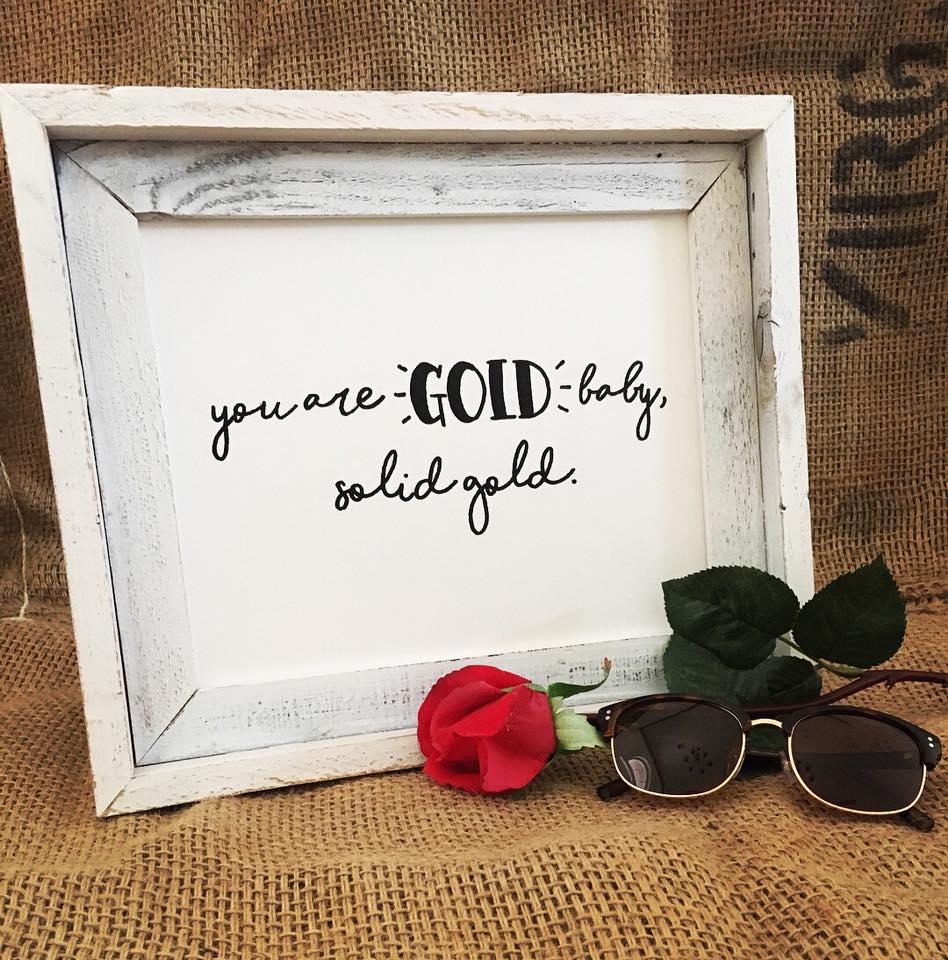 you are GOLD baby,
solid gold.
VIRG